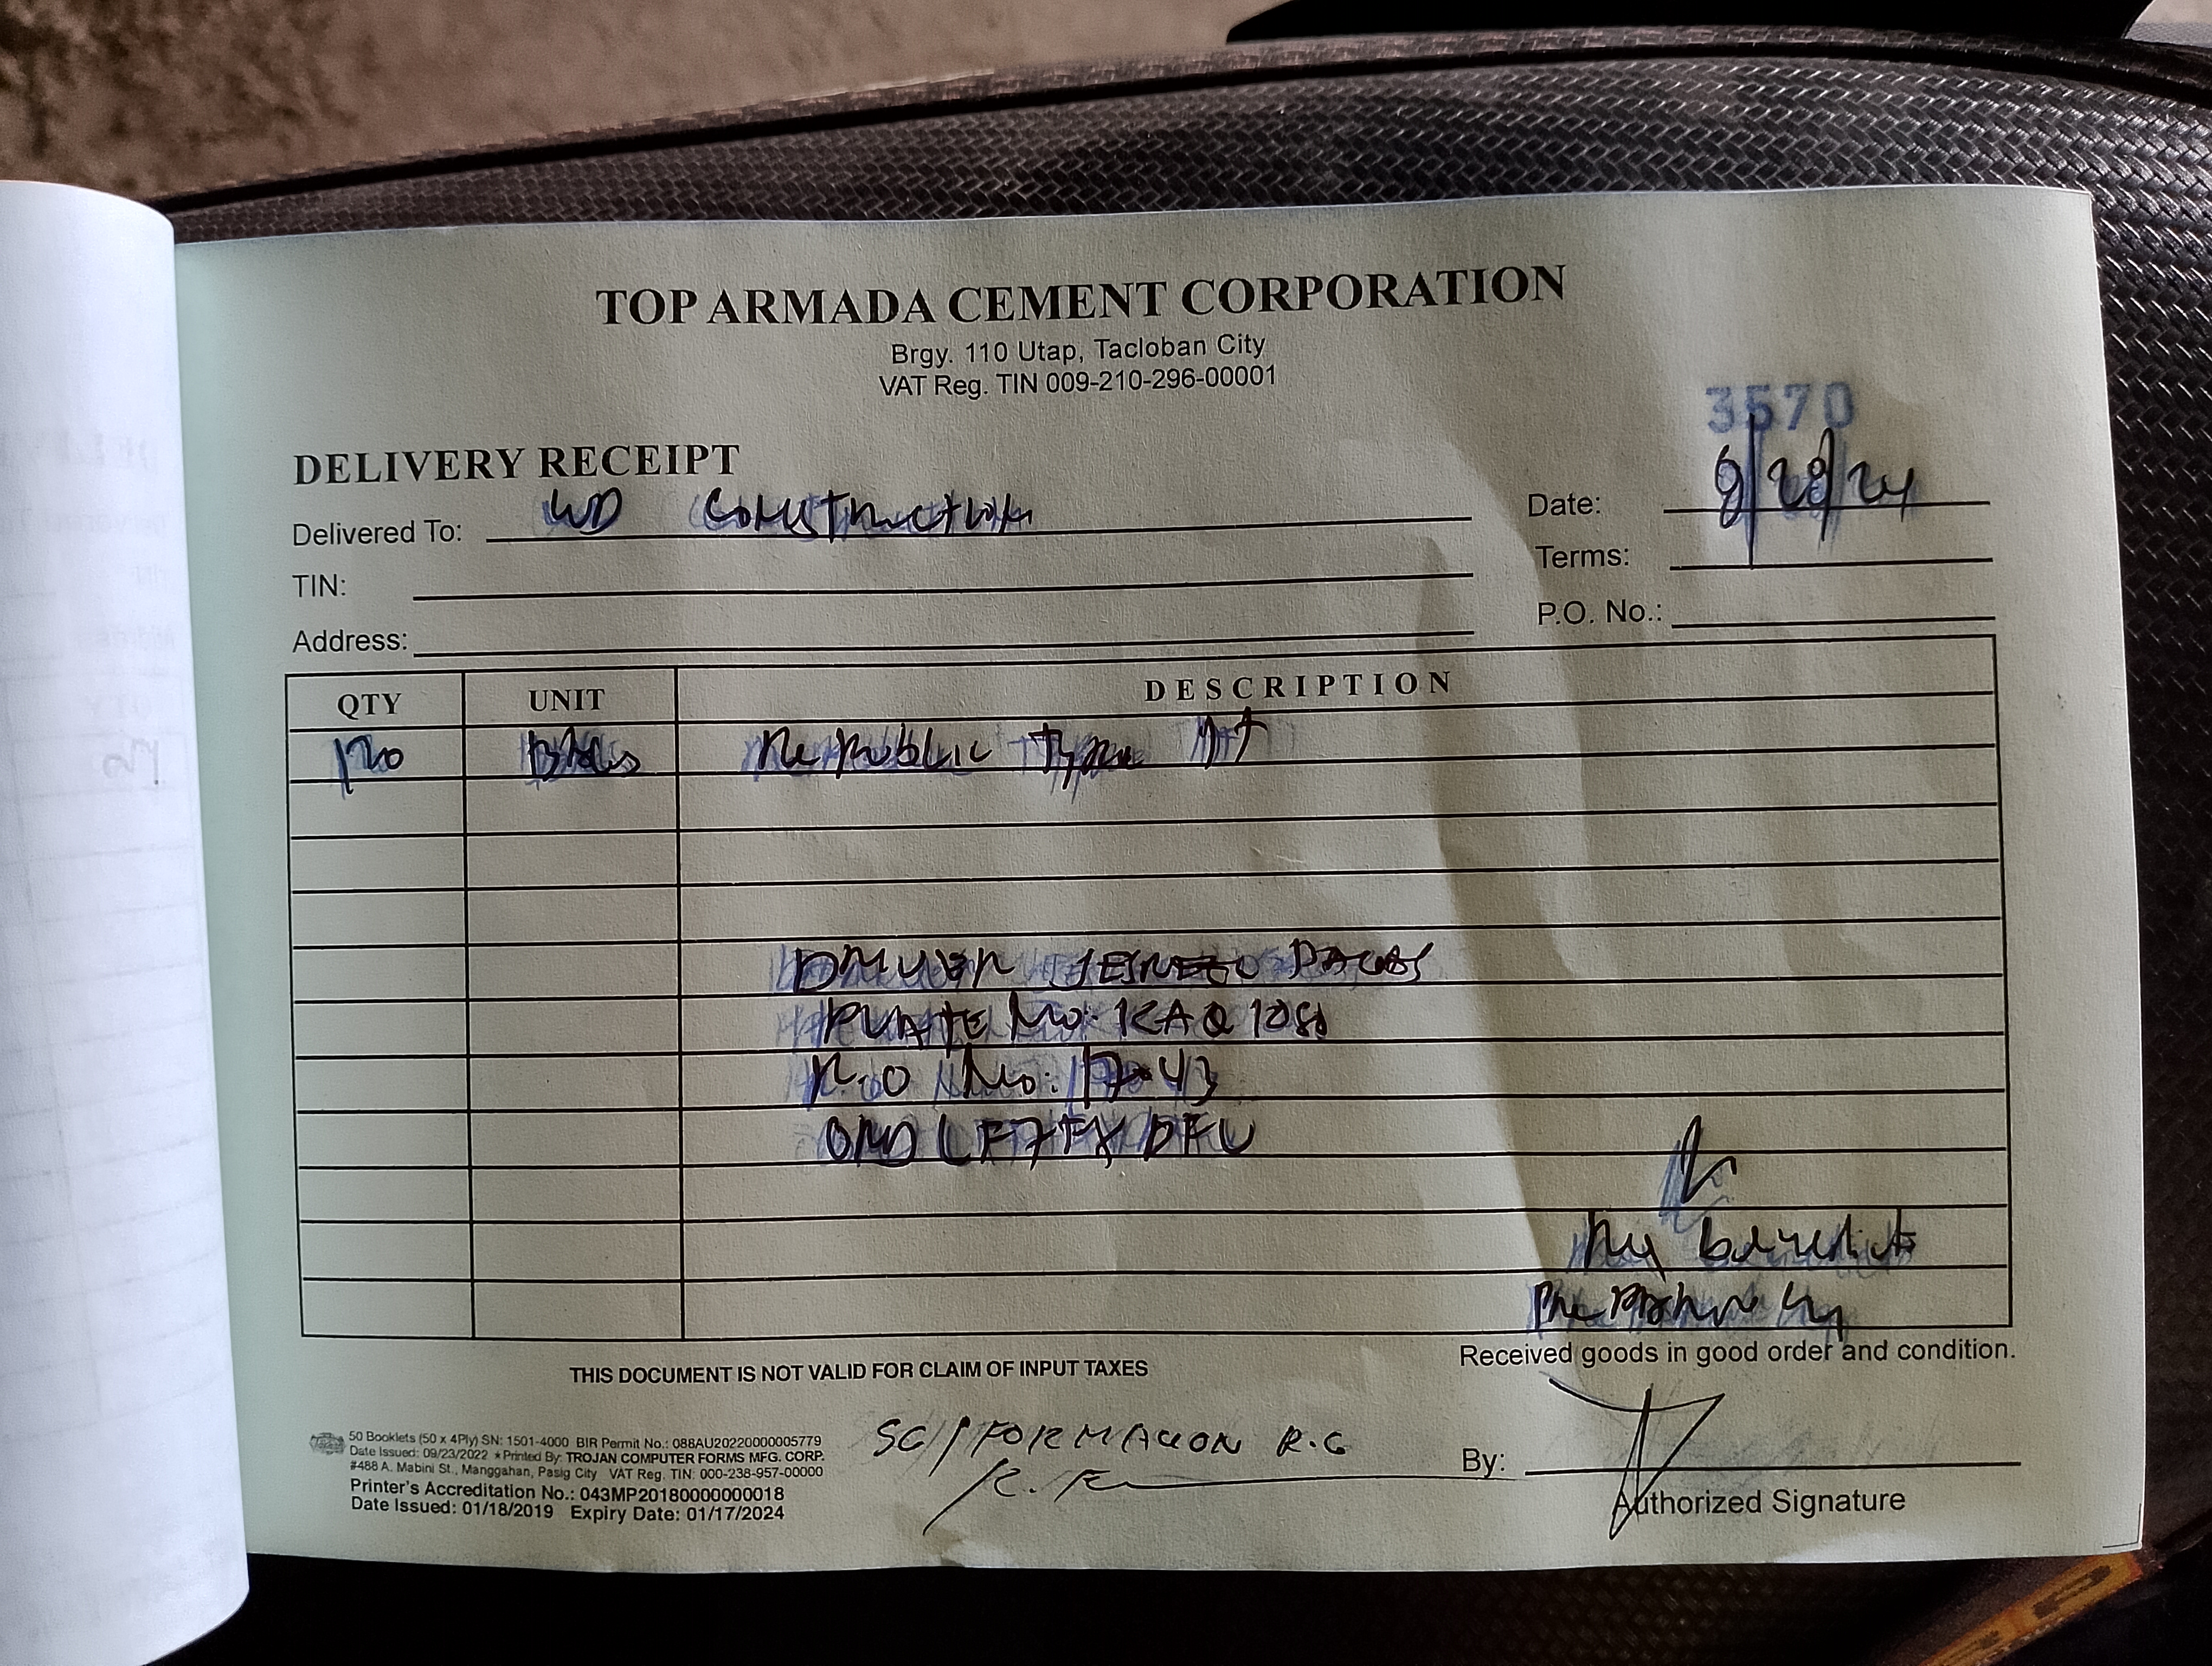 TOP ARMADA CEMENT CORPORATION
Brgy. 110 Utap, Tacloban City
VAT Reg. TIN 009-210-296-00001
3570
DELIVERY RECEIPT
Delivered To: WD Construction
Date: 9/28/24
TIN:
Terms:
Address:
P.O. No.:
QTY UNIT DESCRIPTION
170 BAGS Republic Type 1T
DRIVER
PLATE No: KAQ 1081
No: 17-43
Received goods in good order and condition.
THIS DOCUMENT IS NOT VALID FOR CLAIM OF INPUT TAXES
50 Booklets (50 x 4Ply) SN: 1501-4000 BIR Permit No.: 088AU20220000005779
Date Issued: 09/23/2022 ★Printed By: TROJAN COMPUTER FORMS MFG. CORP.
#488 A. Mabini St., Manggahan, Pasig City VAT Reg. TIN: 000-238-957-00000
Printer's Accreditation No.: 043MP20180000000018
Date Issued: 01/18/2019 Expiry Date: 01/17/2024
SG/FORMACION R.G
By:
Authorized Signature